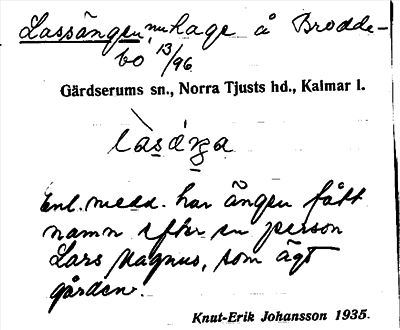 Lassängen, nu hage å Brodde-
bo 13/96
Gärdserums sn., Norra Tjusts hd., Kalmar l.
Enl. medd. har ängen fått
namn efter en person
Lars Magnus, som ägt
gården.
Knut-Erik Johansson 1935.